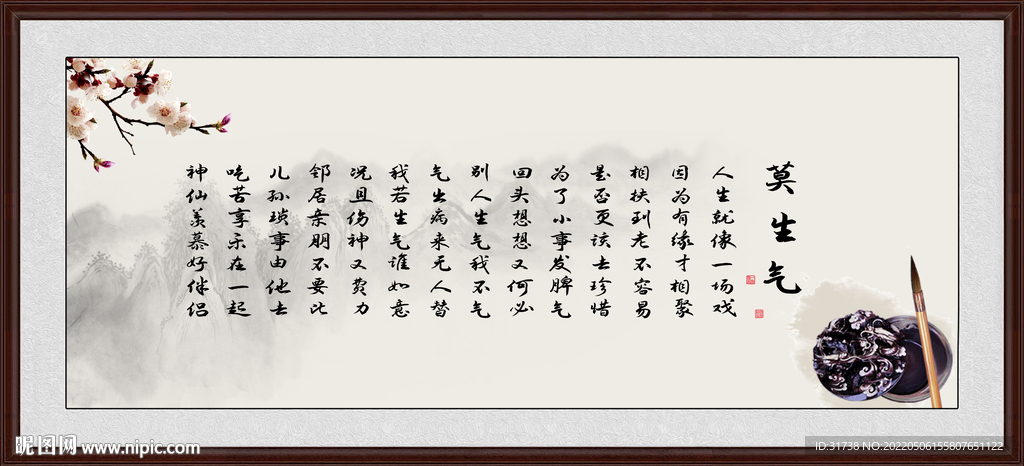 莫生气
人生就像一场戏
因为有缘才相聚
相扶到老不容易
是否更该去珍惜
为了小事发脾气
回头想想又何必
别人生气我不气
气出病来无人替
我若生气谁如意
况且伤神又费力
邻居亲朋不要比
儿孙琐事由他去
吃苦享乐在一起
神仙羡慕好伴侣
昵图网 www.nipic.com
ID:31738 NO:20220506155807651122